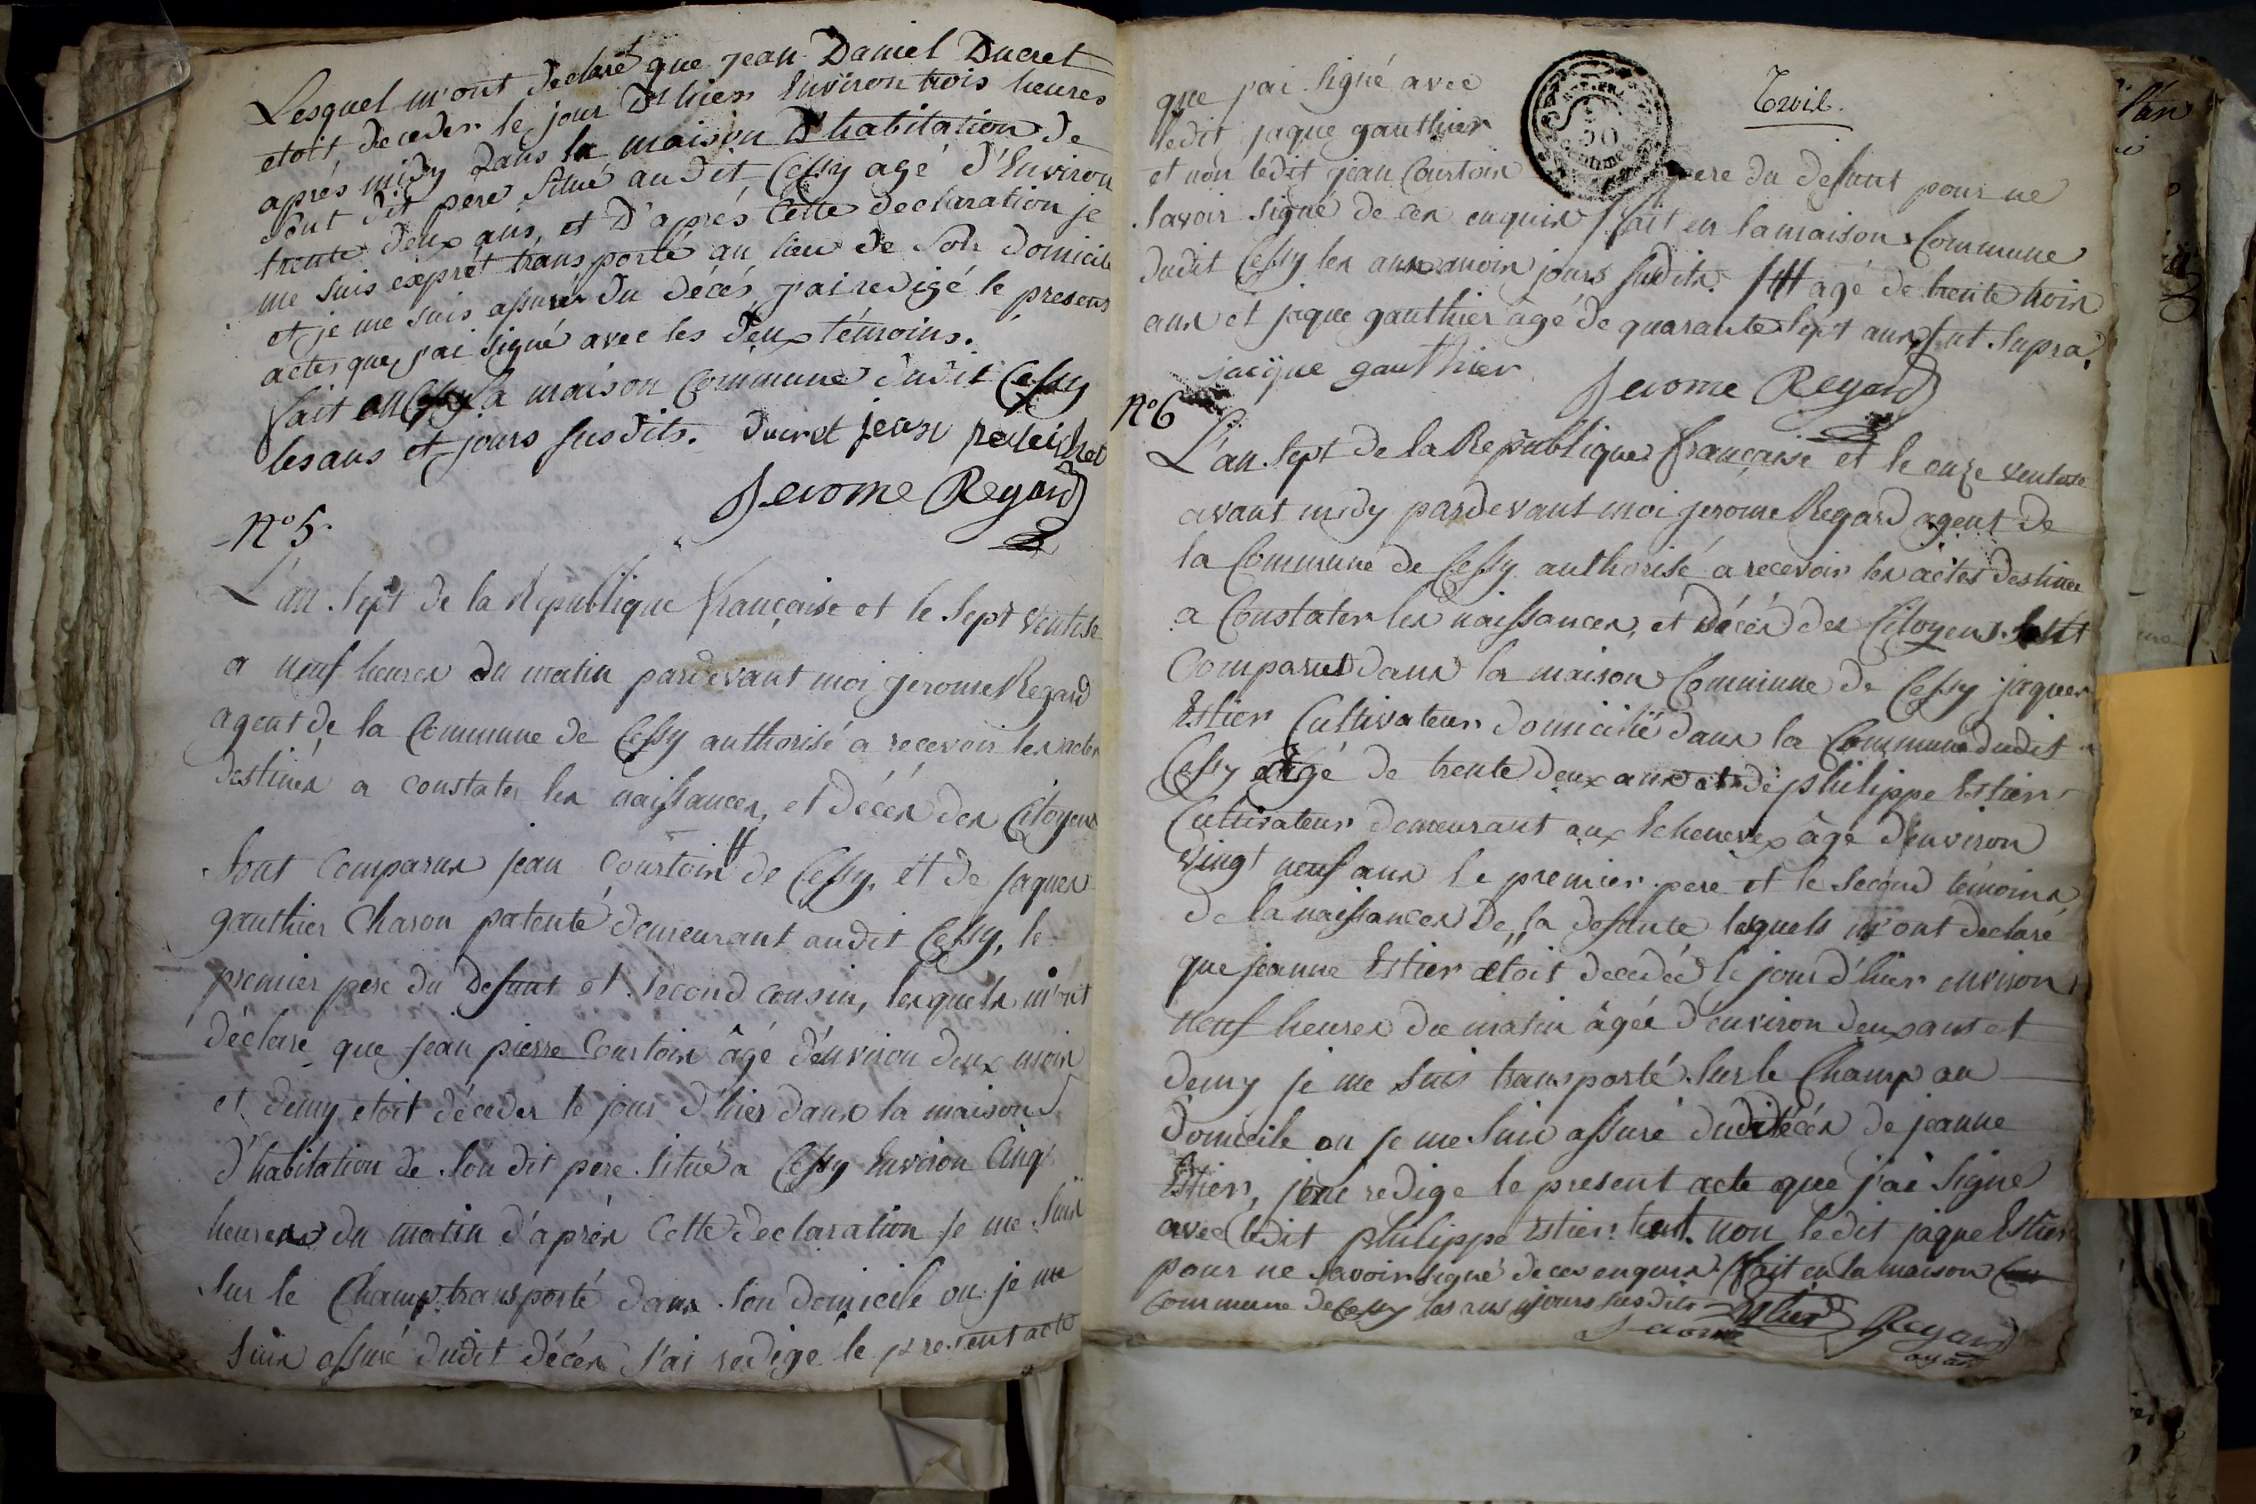 Lesquel m'ont declaré que jean Daniel Ducret
etoit deceder le jour D'hier Environ trois heures
aprés midy dans la maison D'habitation de
Sont dit pere situé audit Cessy agé d'Environ
trente deux ans, et D'aprés Cette declaration je
me suis exprét transporté au lieu de Son domicile
et je me suis assurer du décés j'ai redigé le present
actes que j'ai signé avec les deux témoins.
fait en la maison Commune dudit Cessy
les ans et jours susdits. Ducret jean
Jerome Regard
N° 5.
L'an Sept de la Republique française et le Sept ventose
a neuf heures du matin pardevant moi jerome Regard
agent de la Commune de Cessy authorisé a recevoir les actes
destinés a constater les naissances, et décés des Citoyens
Sont Comparus jean Courtois # de Cessy, et de jaques
gauthier Charon patenté demeurant audit Cessy, le
premier pere du defunt et Second cousin, lesquels m'ont
déclaré que jean pierre Courtois âgé d'environ deux mois
et demy etoit déceder le jour d'hier dans la maison
d'habitation de Son dit pere Situé a Cessy Environ Cinq
heures du matin d'aprés Cette declaration je me Suis
Sur le Champ transporté dans Son domicile ou je me
Suis assuré dudit décés j'ai redigé le present acte
que j'ai signé avec
ledit jaque gauthier
et non ledit jean Courtois
REP. FRA
50
Centimes
Troil.
pere du defunt pour ne
Savoir Signé de ces enquis fait en la maison Commune
dudit Cessy les ans mois jours susdits. # agé de trente trois
ans et jaque gauthier âgé de quarante Sept ans ut Supra.
jacque gauthier
Jerome Regard
N° 6
L'an Sept de la Republique française et le onze ventose
avant midy pardevant moi jerome Regard agent de
la Commune de Cessy authorisé a recevoir les actes destinés
a Constater les naissances, et décés des Citoyens. Sont
Comparus dans la maison Commune de Cessy jaques
Estier Cultivateur domicilié dans la Commune dudit
Cessy âgé de trente deux ans et de philippe Estier
Cultivateur demeurant aux Echenevex âgé d'environ
vingt neuf ans le premier pere et le Second témoins
de la naissances De la defunte lesquels m'ont declaré
que jeanne Estier etoit decedée le jour d'hier environ
neuf heures du matin âgée d'environ deux ans et
demy je me suis transporté Sur le Champ au
domicile ou je me Suis assuré dudit décés de jeanne
Estier, j'ai redige le present acte que j'ai Signe
avec ledit philippe Estier non ledit jaque Estier
pour ne Savoir signé de ces enquis fait en la maison
Commune de Cessy les ans jours susdits Estier
Jerome Regard
agent